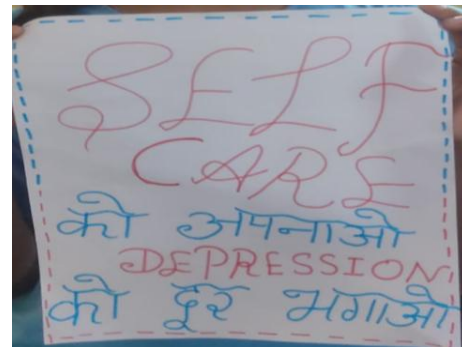 SELF
CARE
को अपनाओ
DEPRESSION
को दूर भगाओ